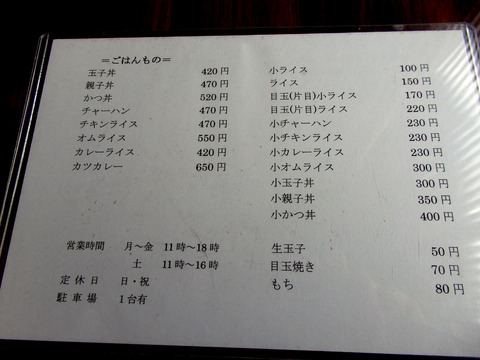 ＝ごはんもの＝
玉子丼 420円
親子丼 470円
かつ丼 520円
チャーハン 470円
チキンライス 470円
オムライス 550円
カレーライス 420円
カツカレー 650円
小ライス 100円
ライス 150円
目玉(片目)小ライス 170円
目玉(片目)ライス 220円
小チャーハン 230円
小チキンライス 230円
小カレーライス 230円
小オムライス 300円
小玉子丼 300円
小親子丼 350円
小かつ丼 400円
営業時間 月～金 11時～18時
土 11時～16時
定休日 日・祝
駐車場 1台有
生玉子 50円
目玉焼き 70円
もち 80円